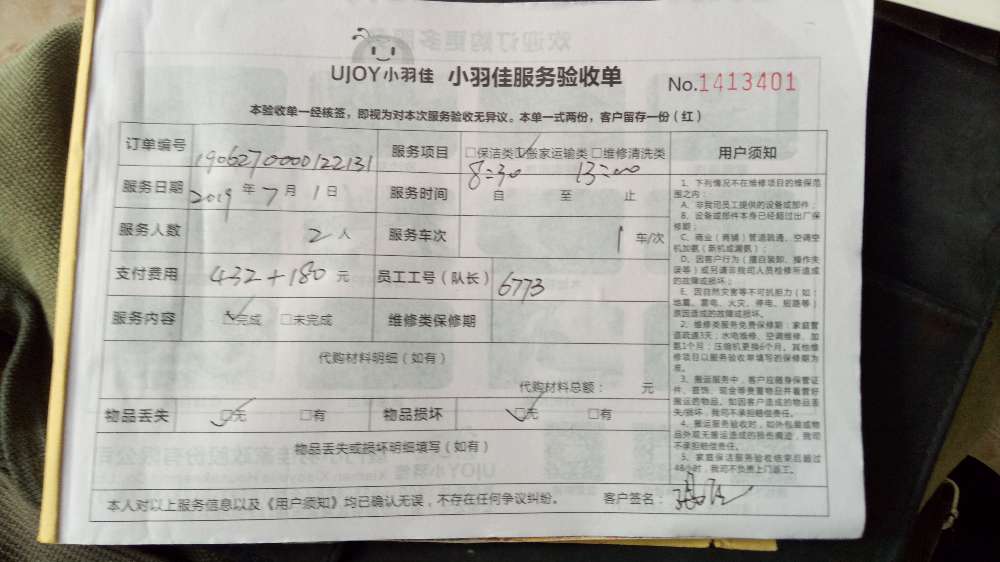 UJOY小羽佳 小羽佳服务验收单 No.1413401
本验收单一经核签，即视为对本次服务验收无异议。本单一式两份，客户留存一份（红）
订单编号 190627000122131 服务项目 □保洁类 ☑搬家运输类 □维修清洗类
服务日期 2019年7月1日 服务时间 8:30 自 至 13:00 止
服务人数 2人 服务车次 1车/次
支付费用 432+180元 员工工号（队长） 6773
服务内容 ☑完成 □未完成 维修类保修期
代购材料明细（如有）
代购材料总额： 元
物品丢失 ☑无 □有 物品损坏 ☑无 □有
物品丢失或损坏明细填写（如有）
本人对以上服务信息以及《用户须知》均已确认无误，不存在任何争议纠纷。 客户签名：
用户须知
1、下列情况不在维修项目的维保范
围之内：
A、非我司员工提供的设备或部件；
B、设备或部件本身已经超过出厂保
修期；
C、商业（商铺）管道疏通、空调空
机加氨（新机或漏氨）；
D、因客户行为（擅自装卸、操作失
误等）或另请非我司人员检修所造成
的故障或损坏；
E、因自然灾害等不可抗拒力（如：
地震、雷电、火灾、停电、短路等）
原因造成的故障或损坏。
2、维修类服务免费保修期：家庭管
道疏通3天；水电维修、空调维修、加
氨1个月；压缩机更换6个月。其他维
修项目以服务验收单填写的保修期为
准。
3、搬运服务中，客户应随身保管证
件、首饰、现金等贵重物品并看管好
搬运的物品。如因客户造成的物品丢
失/损坏，我司不承担赔偿责任。
4、搬运服务验收时，如外包装或物
品外观无搬运造成的损伤痕迹，我司
不承担赔偿责任。
5、家庭保洁服务验收结束后超过
48小时，我司不负责上门返工。